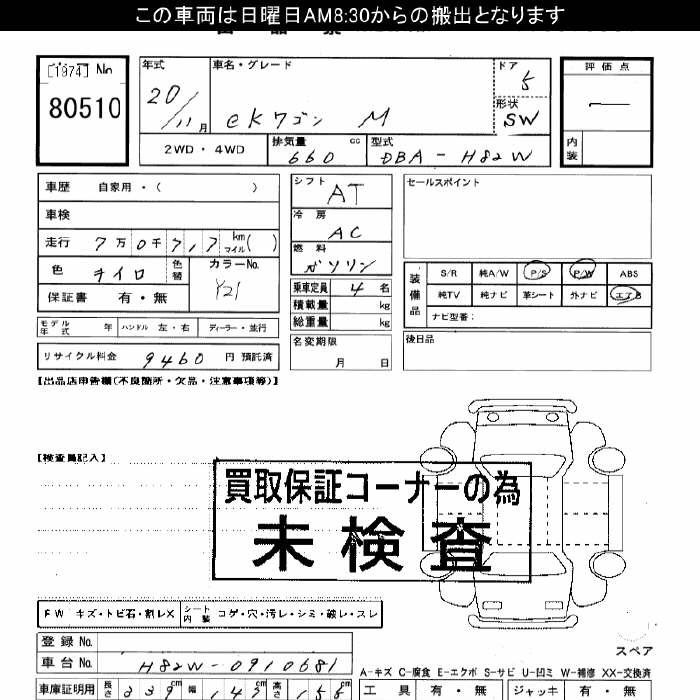 この車両は日曜日AM8:30からの搬出となります
[1974] No
80510
年式 20/11月
車名・グレード eKワゴン M
ドア 5
形状 SW
評価点 ー
内装
2WD・4WD
排気量 660 cc
型式 DBA-H82W
車歴 自家用・( )
車検
走行 7万0千717 km マイル( )
色 キイロ 色替 カラーNo. Y21
保証書 有・無
モデル年式 年 ハンドル 左・右 ディーラー・並行
リサイクル料金 9460 円 預託済
シフト AT
冷房 AC
燃料 ガソリン
乗車定員 4名
積載量 kg
総重量 kg
名変期限 月 日
セールスポイント
装備品 S/R 純A/W P/S P/W ABS
純TV 純ナビ 革シート 外ナビ エアB
ナビ型番:
後日品
【出品店申告欄(不良箇所・欠品・注意事項等)】
【検査員記入】
買取保証コーナーの為
未検査
FW キズ・トビ石・割レX シート内装 コゲ・穴・汚レ・シミ・破レ・スレ
登録No.
車台No. H82W-0910681
スペア
A-キズ C-腐食 E-エクボ S-サビ U-凹ミ W-補修 XX-交換済
車庫証明用 長さ 339cm 幅 147cm 高さ 155cm
工具 有・無 ジャッキ 有・無